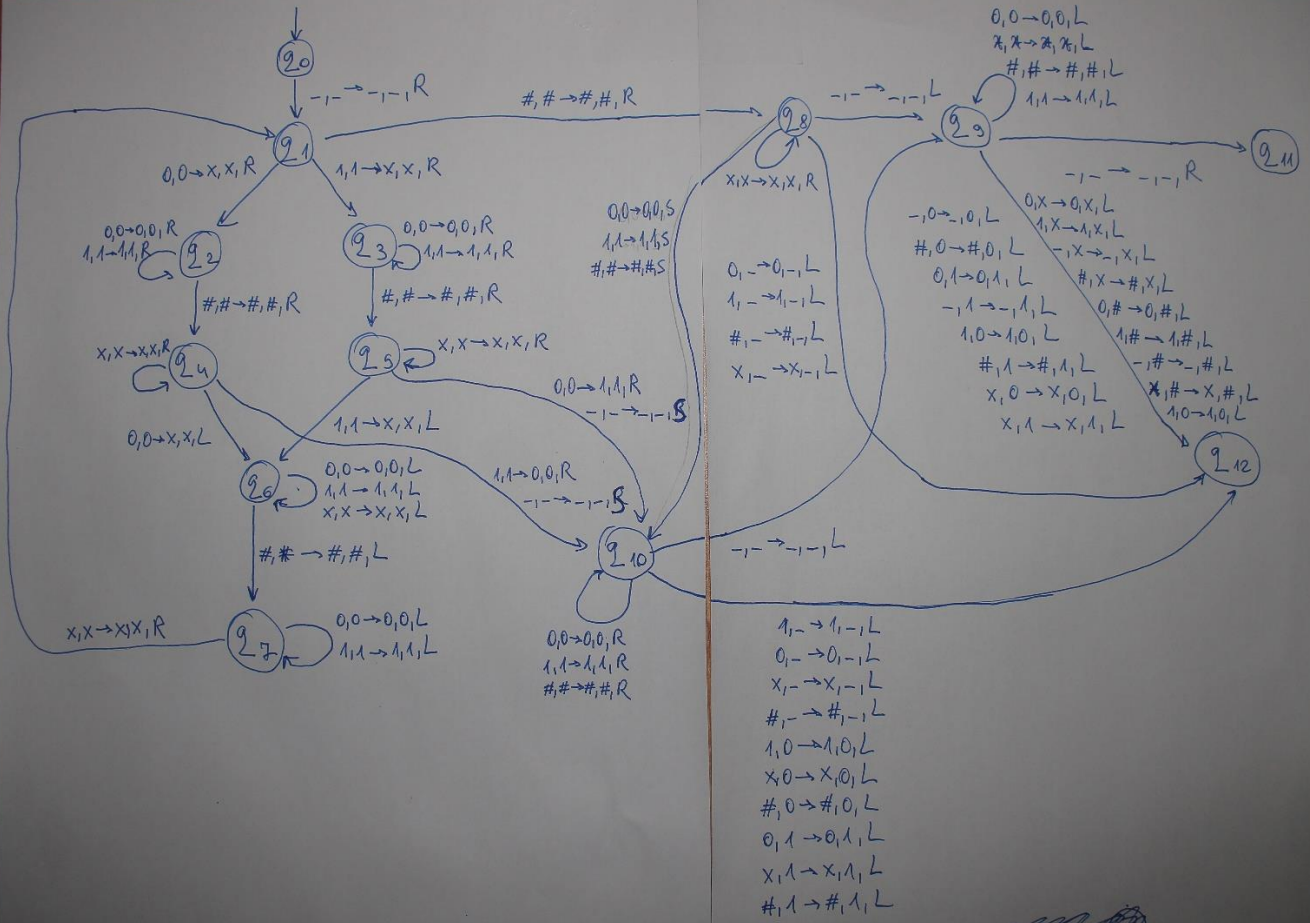 q0
-,- → -,-, R
q1
#,# → #,#, R
0,0 → x,x, R
1,1 → x,x, R
0,0 → 0,0, R
1,1 → 1,1, R
q2
q3
0,0 → 0,0, R
1,1 → 1,1, R
#,# → #,#, R
#,# → #,#, R
x,x → x,x, R
q4
q5
x,x → x,x, R
0,0 → x,x, L
1,1 → x,x, L
0,0 → 1,1, R
-,- → -,-, S
1,1 → 0,0, R
-,- → -,-, S
q6
0,0 → 0,0, L
1,1 → 1,1, L
x,x → x,x, L
#,# → #,#, L
x,x → x,x, R
q7
0,0 → 0,0, L
1,1 → 1,1, L
q10
0,0 → 0,0, R
1,1 → 1,1, R
#,# → #,#, R
q8
x,x → x,x, R
0,0 → 0,0, S
1,1 → 1,1, S
#,# → #,#, S
-,- → -,-, L
0,- → 0,-, L
1,- → 1,-, L
#,- → #,-, L
x,- → x,-, L
0,0 → 0,0, L
x,x → x,x, L
#,# → #,#, L
1,1 → 1,1, L
q9
-,- → -,-, R
q11
-,0 → -,0, L
#,0 → #,0, L
0,1 → 0,1, L
-,1 → -,1, L
1,0 → 1,0, L
#,1 → #,1, L
x,0 → x,0, L
x,1 → x,1, L
0,x → 0,x, L
1,x → 1,x, L
-,x → -,x, L
#,x → #,x, L
0,# → 0,#, L
1,# → 1,#, L
-,# → -,#, L
x,# → x,#, L
1,0 → 1,0, L
q12
-,- → -,-, L
1,- → 1,-, L
0,- → 0,-, L
x,- → x,-, L
#,- → #,-, L
1,0 → 1,0, L
x,0 → x,0, L
#,0 → #,0, L
0,1 → 0,1, L
x,1 → x,1, L
#,1 → #,1, L